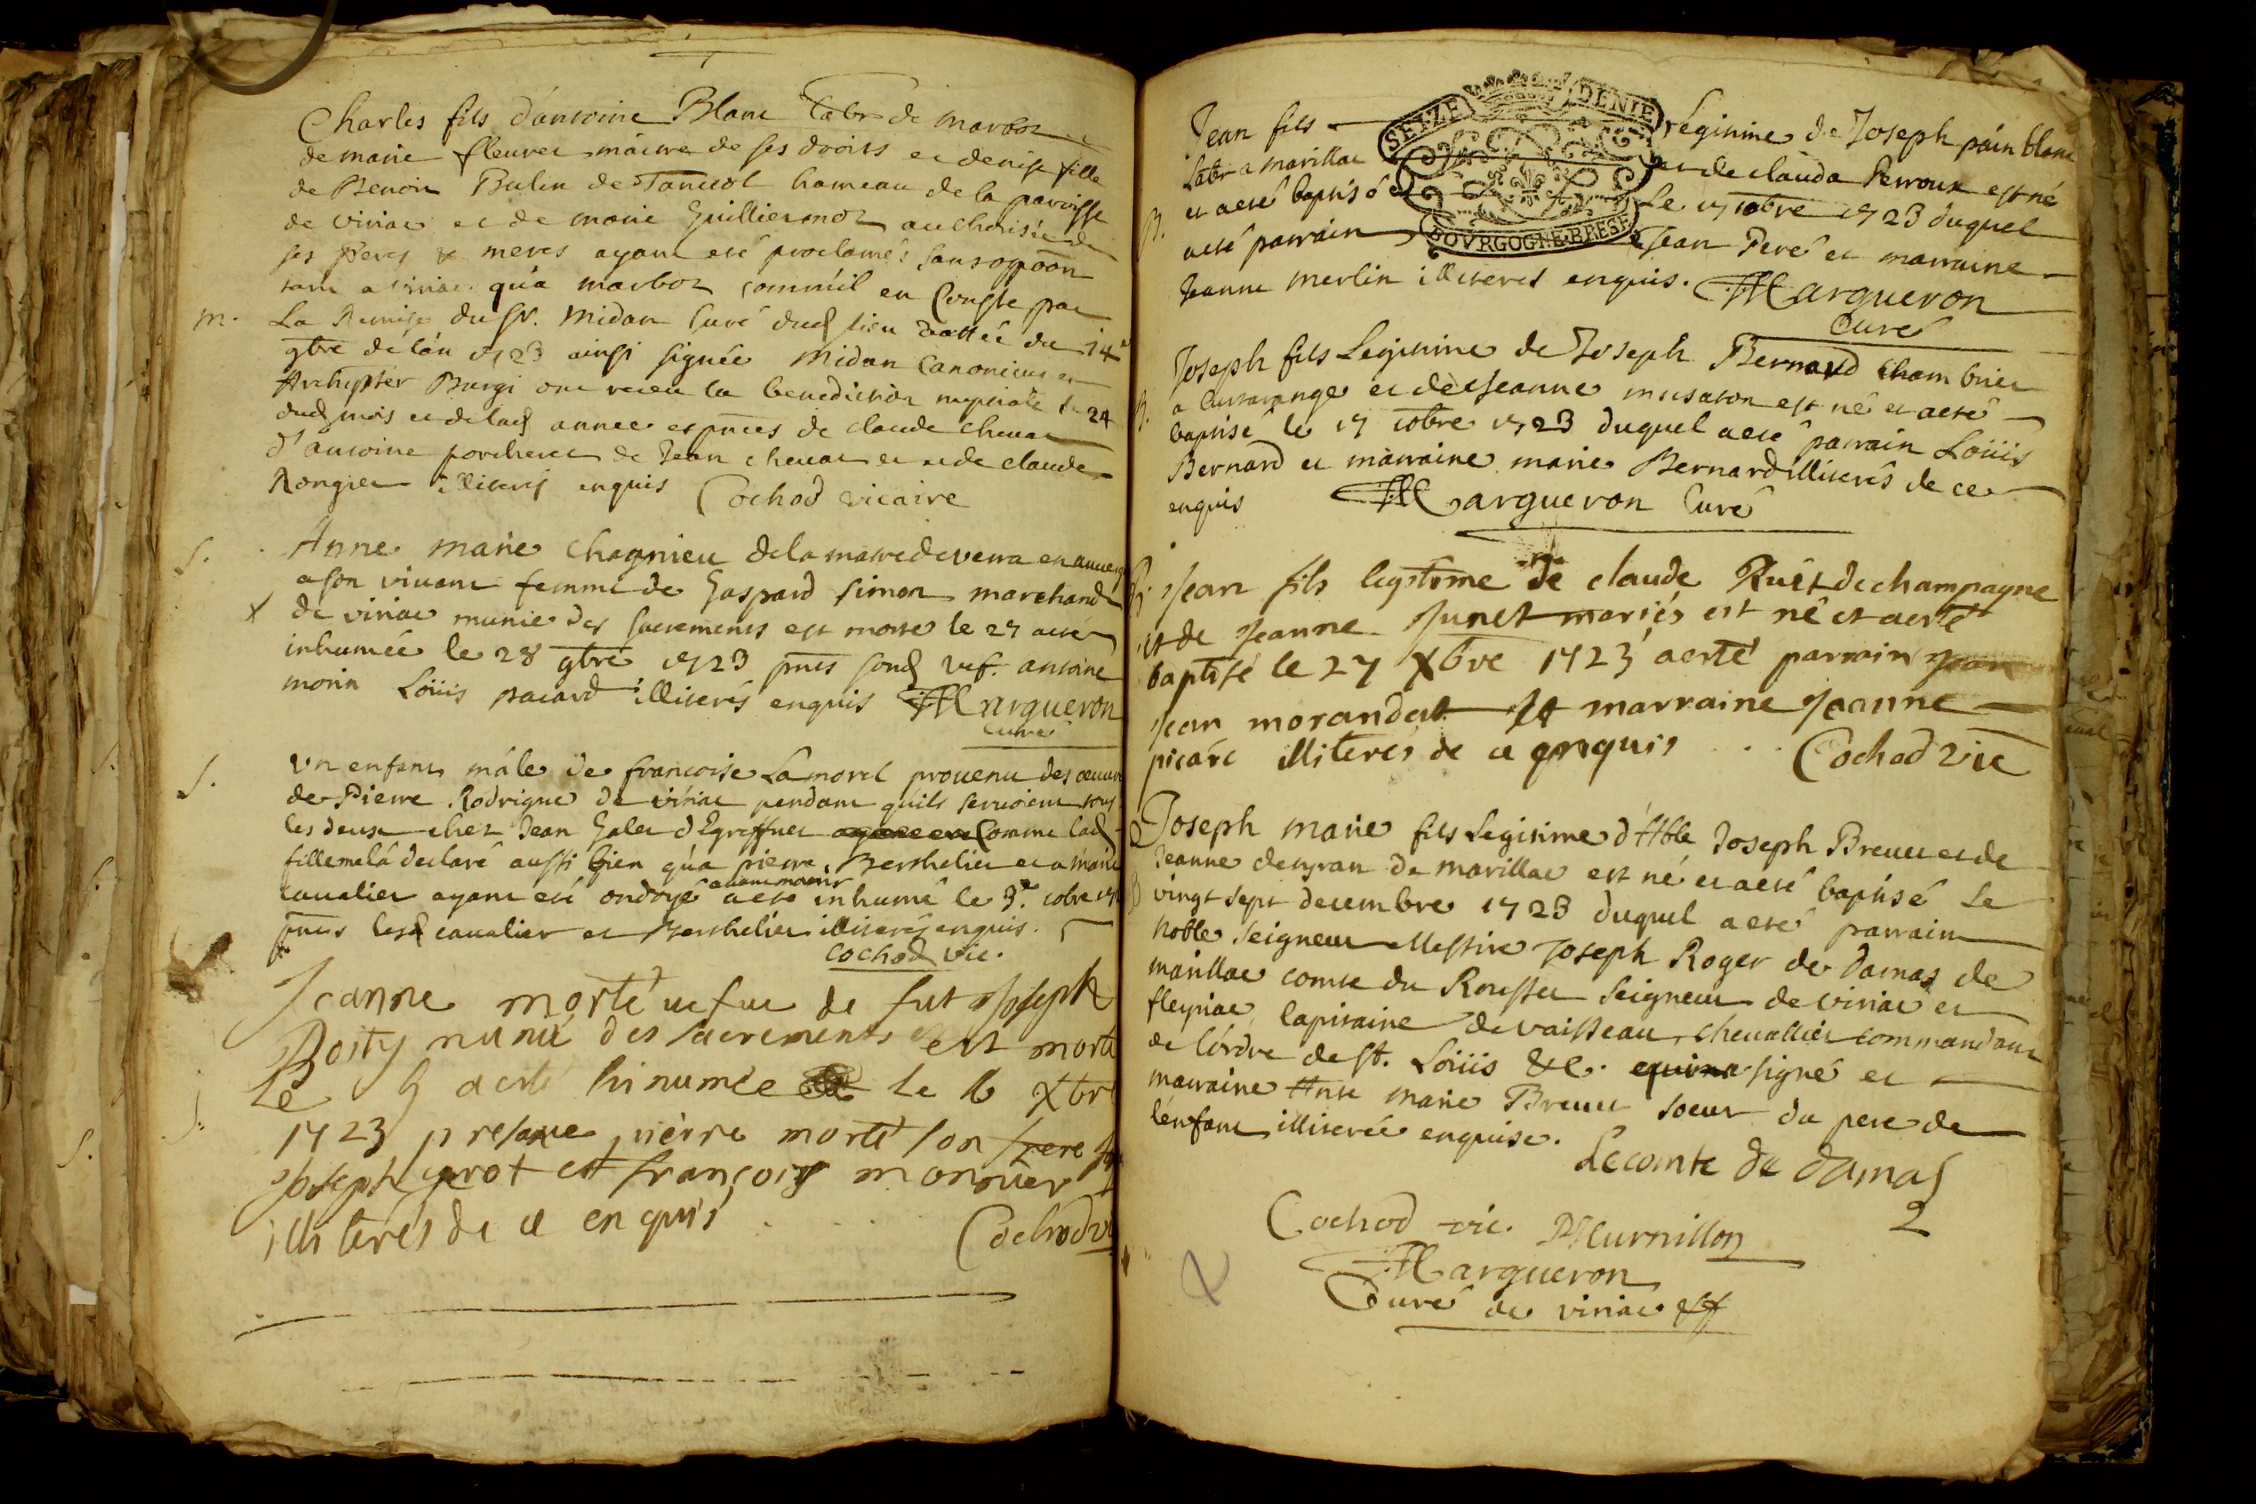 Charles fils d'antoine Blanc labr de marboz et
de marie fleuret maitre de ses droits et denise fille
de Benoit Bulin de Tanuol hameau de la paroisse
de viriac et de marie Guilliermoz authorisée de
ses peres & meres ayant esté proclamés sans oppoôn
tant a viriac qu'a marboz comm'il en Conste par
m. La Remise du Sr. Midan Curé dud lieu dattée du 14e
9bre de l'an 1723 ainsi signée Midan Canonicus et
Archipter Burgi ont receu la benediction nuptiale le 24
dud mois et de lad annee es pntes de claude chenat
d'antoine porcheret de Jean chenat et de claude
Rongier illiterés enquis Cochod vicaire
S. Anne marie Chagnieu de la maire de verra en auverg
a son vivant femme de Gaspard Simon marchand
x de viriac munie des sacrements est morte le 27 a esté
inhumée le 28 9bre 1723 pnts sond vef. antoine
morin Loüis pacard illiterés enquis Margueron
Curé
S. Un enfant mâle de francoise Lamorel provenu des œuvres
de Pierre Rodrigue de viriac pendant qu'ils servoient tous
les deux chez Jean Galet d'Egreffuet Comme lad
fille me l'a declaré aussi bien qu'a pierre Berthelier et a
cavalier ayant été ondoyé avant mourir a esté inhumé le 3e. xobre
pnts lesd cavalier et Berthelier illiterés enquis.
Cochod vic.
Jeanne morté vefue de fut Joseph
Boity munie des sacrements est morte
Le 5 a esté hinumée le 6 Xbre
1723 presant pierre morté son frere
Joseph grot et françois monnier
illiterés de ce enquis . . . . Cochod vi
SEIZE DENIE
BOVRGOGNE·BRESSE
Jean fils Legitime de Joseph pain blanc
labr a marillat et de clauda Perroux est né
B. et a eté baptisé Le 17 xobre 1723 duquel
a eté parrain Jean Peré et marraine
Jeanne merlin illiteres enquis. Margueron
Curé
Joseph fils Legitime de Joseph Bernard chambrier
B. a Curtarange et de Jeanne musaton est né et a eté
baptisé le 17 xobre 1723 duquel a eté parrain Loüis
Bernard et marraine marie Bernard illiterés de ce
enquis Margueron Curé
B. Jean fils legitime de claude Ruët de champagne
et de Jeanne Junet mariés est né et a esté
baptisé le 27 Xbre 1723 a esté parrain Jean
Jean morandat et marraine Jeanne
picarc illiterés de ce enquis . . Cochod vic
Joseph marie fils Legitime d'Hble Joseph Breuet et de
Jeanne dengran de marillac est né et a eté baptisé Le
B vingt sept decembre 1723 duquel a eté parrain
noble Seigneur Messire Joseph Roger de Damas de
marillac comte du Rousset Seigneur de viriac et
fleyriac, Capitaine de vaisseau, chevallier commandant
de l'ordre de st. Loüis &c. qui a signé et
marraine Anne marie Breuet soeur du pere de
l'enfant illiterée enquise.
Le comte de damas
Cochod vic. Meurnillon 2
Margueron
Curé de viriac